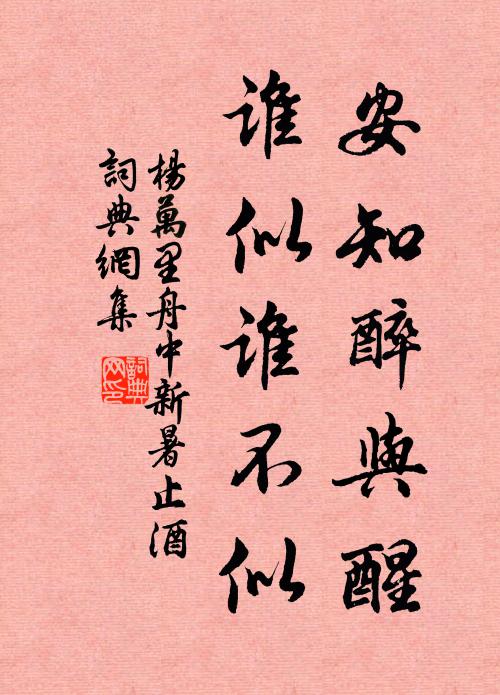 安知醉與醒
誰似誰不似
楊萬里舟中新暑止酒
詞典網集
詞典
网印